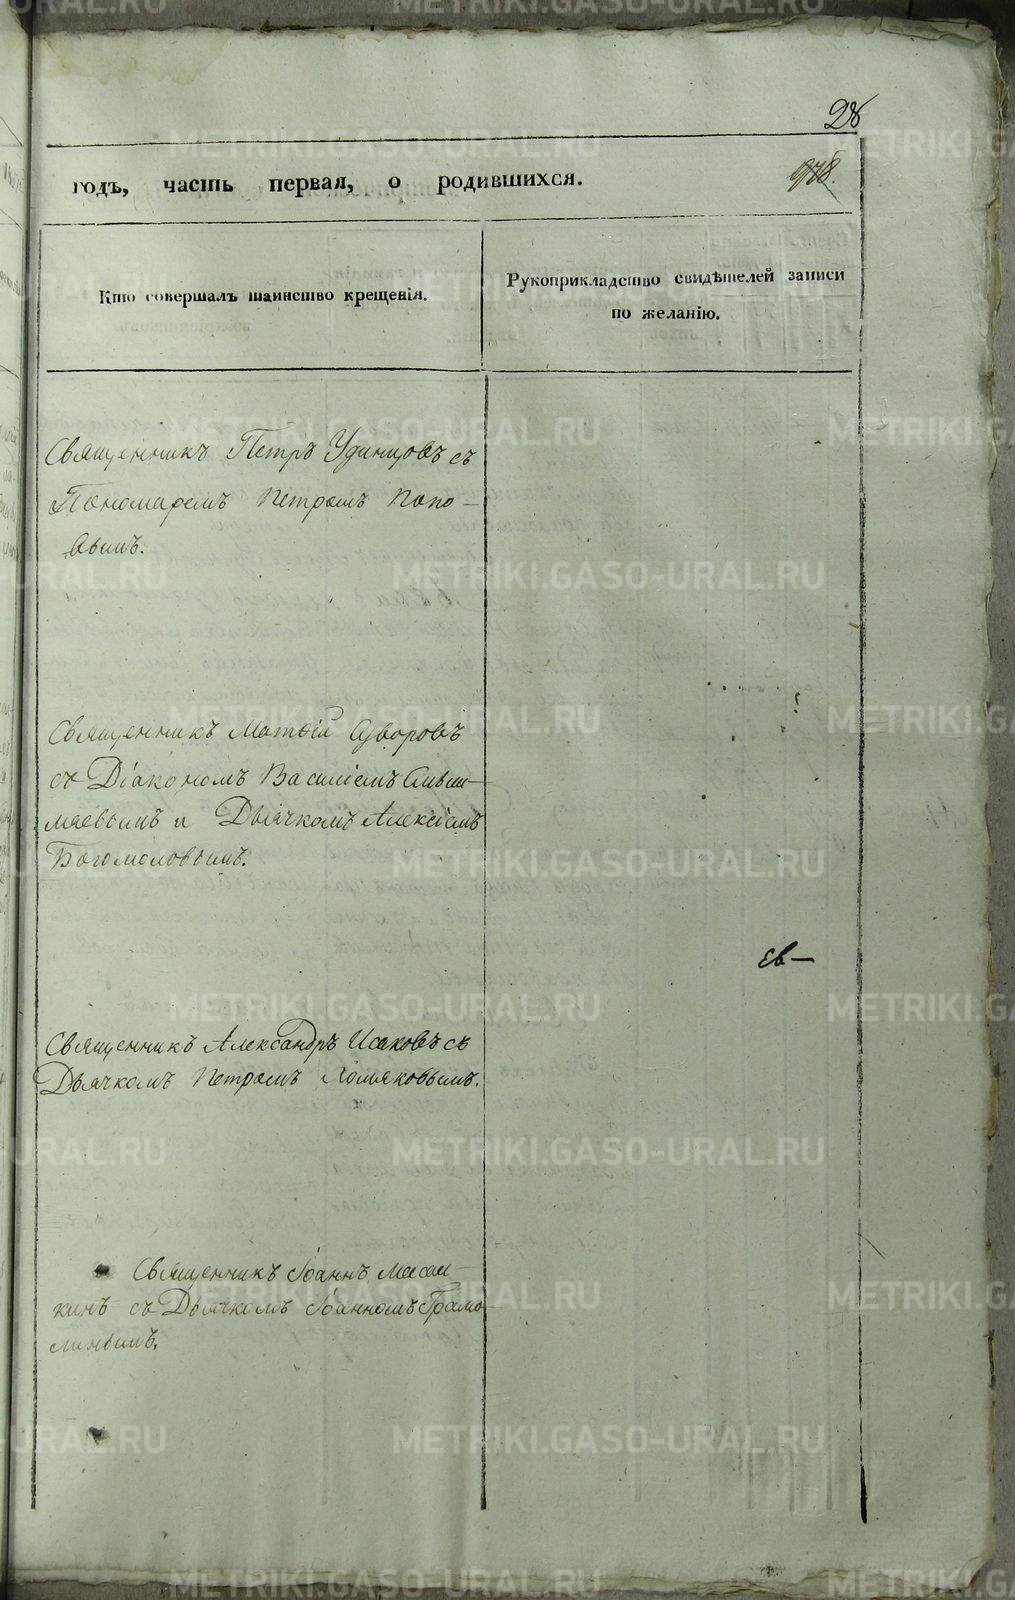 28
годъ, часть первая, о родившихся.
978.
Кто совершалъ таинство крещенія.
Рукоприкладство свидѣтелей записи
по желанію.
Священникъ Петръ Удинцовъ съ
Пономаремъ Петромъ Попо-
вымъ.
Священникъ Матѳій Суворовъ
съ Діакономъ Василіемъ
и Дьячкомъ Алексіемъ
Богомоловымъ.
ев-
Священникъ Александръ Исаковъ съ
Дьячкомъ Петромъ Хомяковымъ.
Священникъ Іоаннъ
съ Дьячкомъ Іоанномъ Грамо-
линымъ.
METRIKI.GASO-URAL.RU